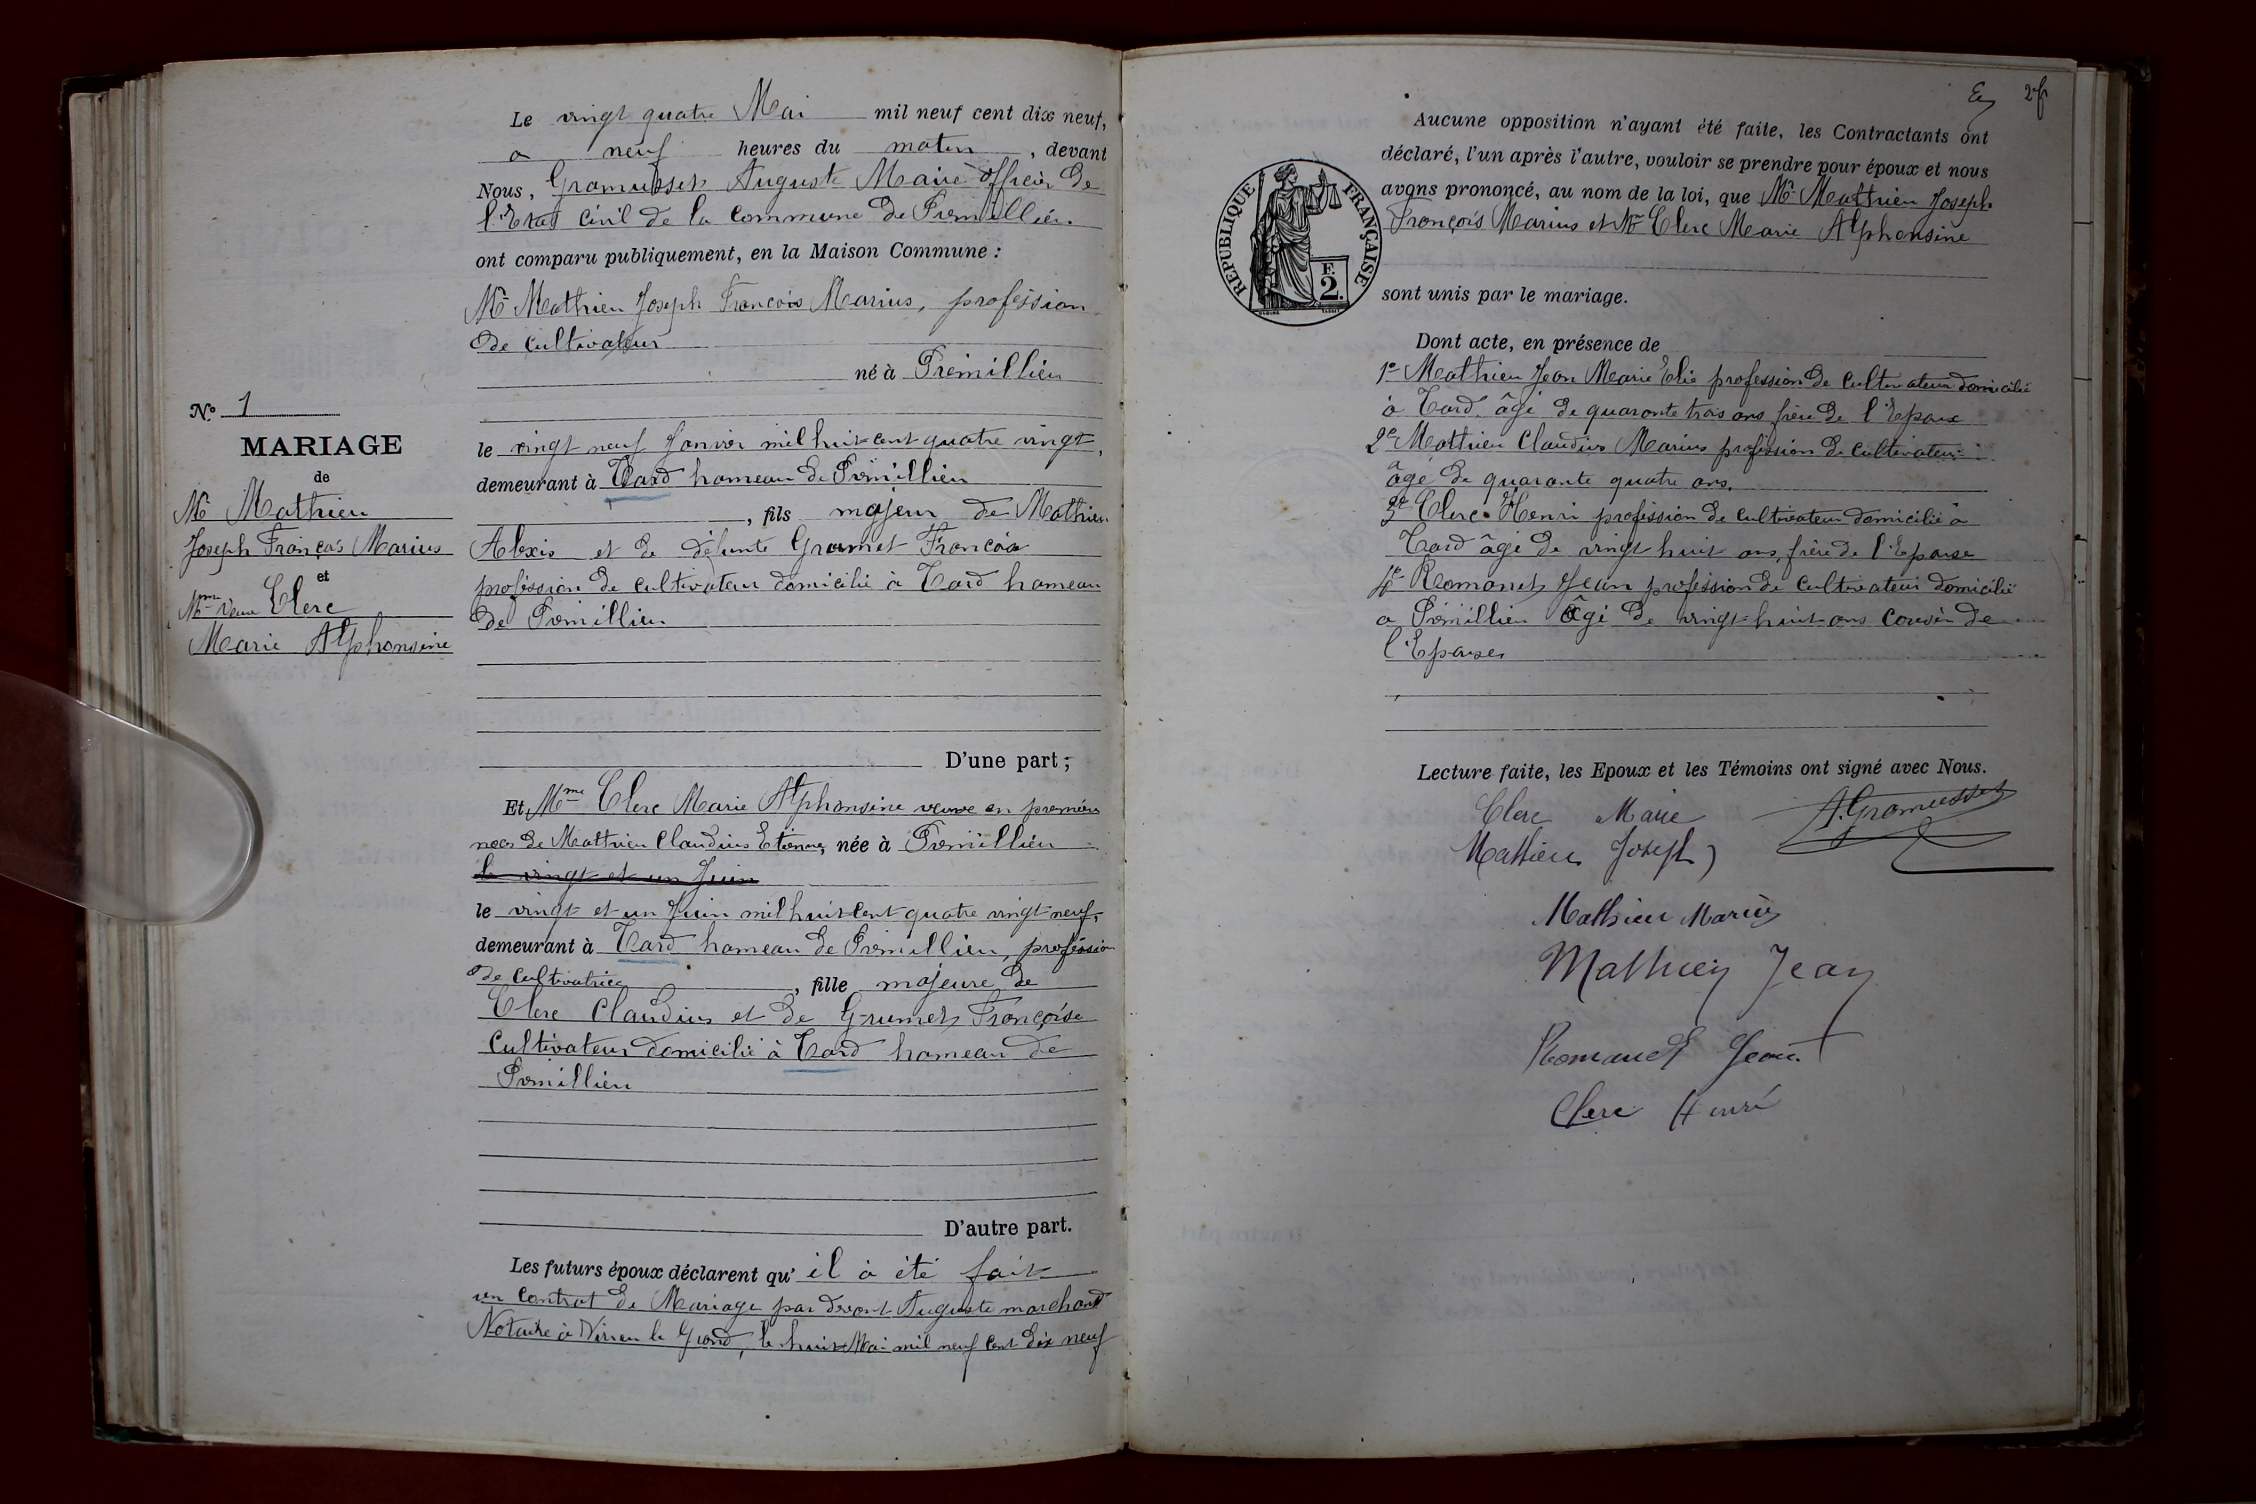 N.º 1
MARIAGE
de
Mr Mathieu
Joseph François Marius
et
Mme Veuve Clerc
Marie Alphonsine
Le vingt quatre Mai mil neuf cent dix neuf,
a neuf heures du matin, devant
Nous, Gramusset Auguste Maire officier de
l'Etat Civil de la Commune de Prémillieu
ont comparu publiquement, en la Maison Commune :
Mr Mathieu Joseph François Marius, profession
de cultivateur
né à Prémillieu
le vingt neuf Janvier mil huit cent quatre vingt,
demeurant à Tard hameau de Prémillieu
, fils majeur de Mathieu
Alexis et de défunte Grumet
profession de cultivateur domicilié à Tard hameau
de Prémillieu
D'une part ;
Et Mme Clerc Marie Alphonsine veuve en première
noces de Mathieu Claudius Etienne, née à Prémillieu
le vingt et un Juin
le vingt et un Juin mil huit cent quatre vingt neuf,
demeurant à Tard hameau de Prémillieu, profession
de cultivatrice, fille majeure de
Clerc Claudius et de Grumet Françoise
Cultivateur domicilié à Tard hameau de
Prémillieu
D'autre part.
Les futurs époux déclarent qu'il à été fait
un Contrat de Mariage par devant Auguste marchand
Notaire à Virieu le Grand, le huit Mai mil neuf cent dix neuf
Aucune opposition n'ayant été faite, les Contractants ont
déclaré, l'un après l'autre, vouloir se prendre pour époux et nous
avons prononcé, au nom de la loi, que Mr Mathieu Joseph
François Marius et Me Clerc Marie Alphonsine
sont unis par le mariage.
REPUBLIQUE FRANÇAISE
F.
2.
Dont acte, en présence de
1º Mathieu Jean Marie Elie profession de cultivateur domicilié
à Tard âgé de quarante trois ans frère de l'Epoux
2e Mathieu Claudius Marius profession de cultivateur
âgé de quarante quatre ans.
3e Clerc Henri profession de cultivateur domicilié à
Tard âgé de vingt huit ans, frère de l'Epouse
4e Romanet Jean profession de cultivateur domicilié
a Prémillieu âgé de vingt huit ans cousin de
l'Epouse
Lecture faite, les Epoux et les Témoins ont signé avec Nous.
Clerc Marie A. Gramusset
Mathieu Joseph
Mathieu Marius
Mathieu Jean
Romanet Jean
Clerc Henri